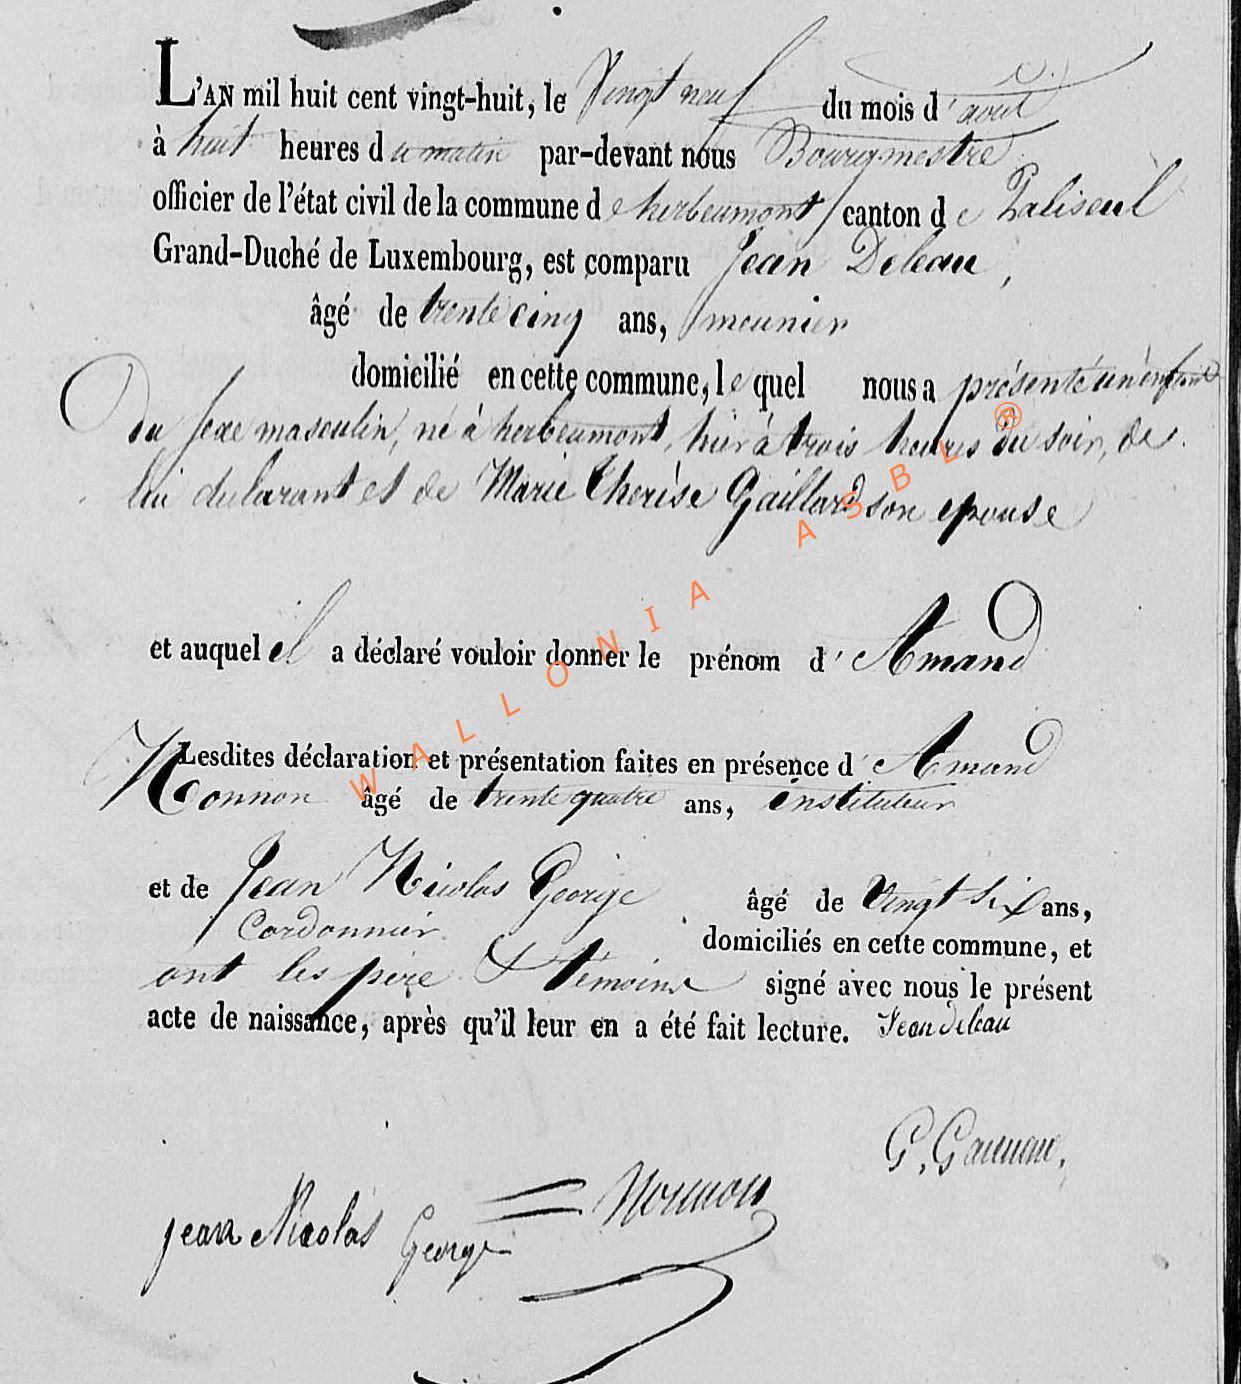 L'AN mil huit cent vingt-huit, le Vingt neuf du mois d'août
à huit heures du matin par-devant nous Bourgmestre
officier de l'état civil de la commune de herbeumont canton de Paliseul
Grand-Duché de Luxembourg, est comparu Jean Deleau,
âgé de trente cinq ans, meunier
domicilié en cette commune, le quel nous a présenté un enfant
Du sexe masculin, né à herbeumont, hier à trois heures du soir, de
lui déclarant et de Marie Therèse Gaillard son epouse
et auquel il a déclaré vouloir donner le prénom d'Amand
Lesdites déclaration et présentation faites en présence d'Amand
Nonnon âgé de trente quatre ans, instituteur
et de Jean Nicolas George âgé de Vingt six ans,
Cordonnier domiciliés en cette commune, et
ont les père & témoins signé avec nous le présent
acte de naissance, après qu'il leur en a été fait lecture. Jean deleau
Jean Nicolas George Nonnon
WALLONIA ASBL ®